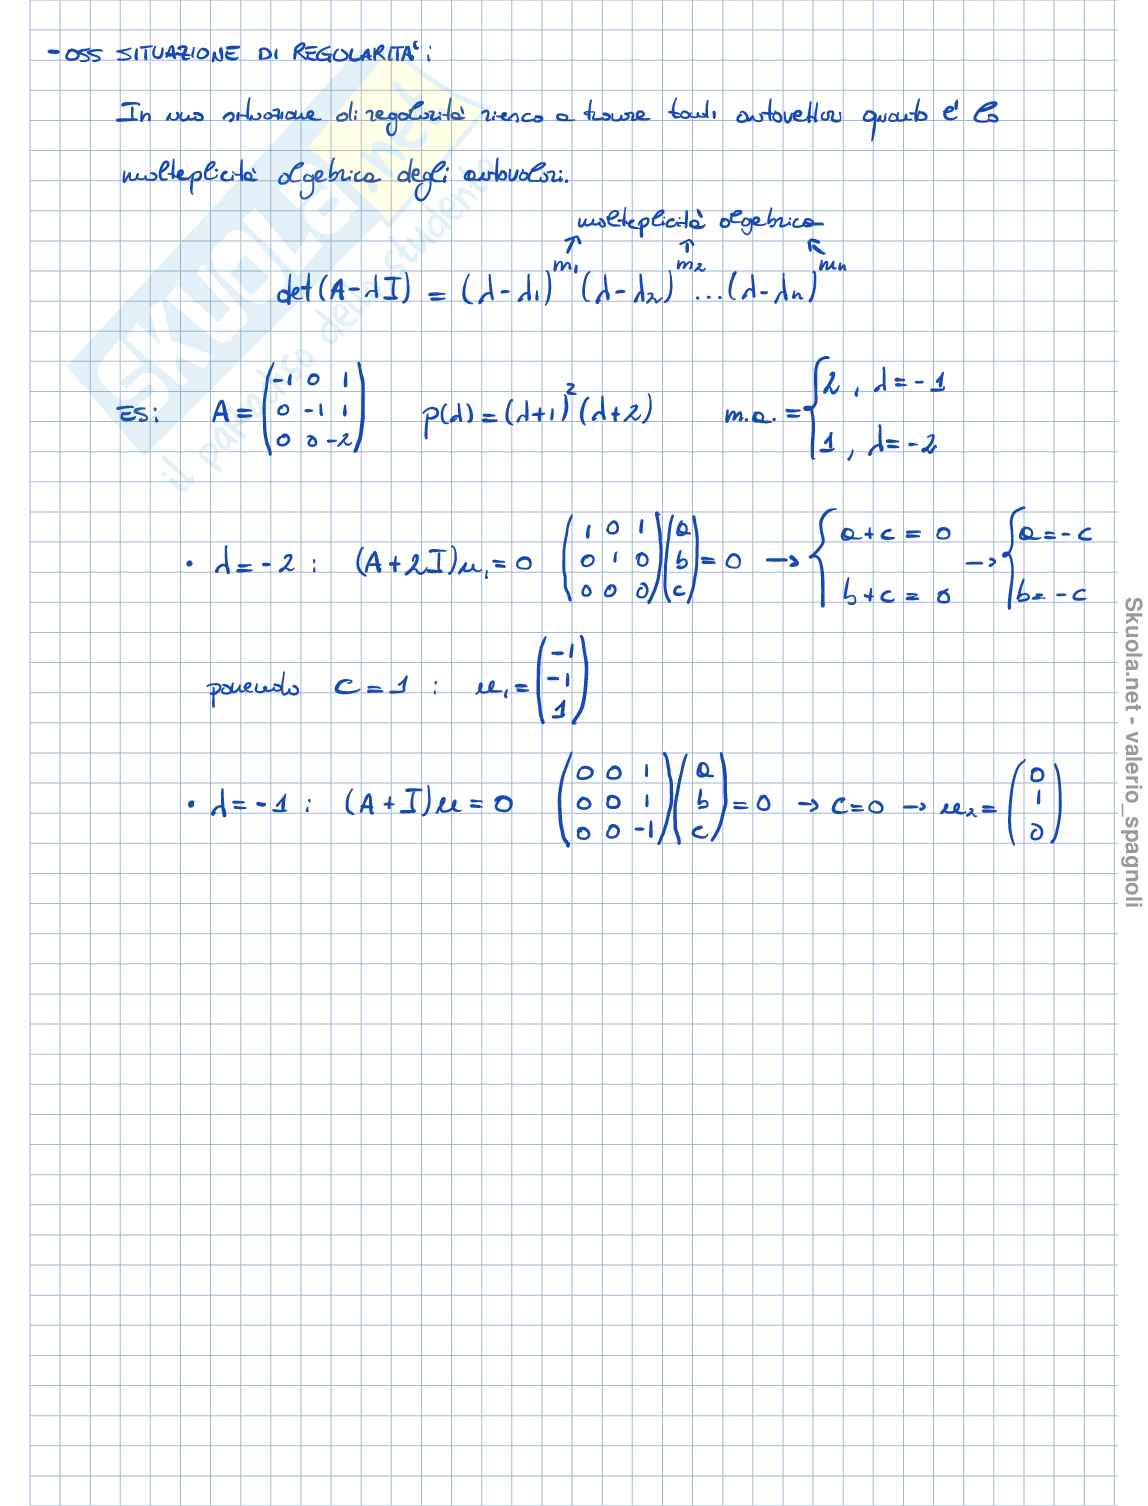 - OSS SITUAZIONE DI REGOLARITA':
In una situazione di regolarità riesco a trovare tanti autovettori quanto è la
molteplicità algebrica degli autovalori.
molteplicità algebrica
det(A-λI) = (λ-λ₁)^m₁ (λ-λ₂)^m₂ ...(λ-λn)^mn
ES: A = (-1 0 1 / 0 -1 1 / 0 0 -2) p(λ) = (λ+1)² (λ+2) m.a. = { 2, λ = -1 / 1, λ = -2
• λ = -2 : (A+2I)u₁ = 0 (1 0 1 / 0 1 0 / 0 0 0)(a / b / c) = 0 → { a+c = 0 / b+c = 0 → { a = -c / b = -c
ponendo c = 1 : u₁ = (-1 / -1 / 1)
• λ = -1 : (A+I)u = 0 (0 0 1 / 0 0 1 / 0 0 -1)(a / b / c) = 0 → c = 0 → u₂ = (0 / 1 / 0)
SKUOLA.net
il paradiso dello studente
Skuola.net - valerio_spagnoli